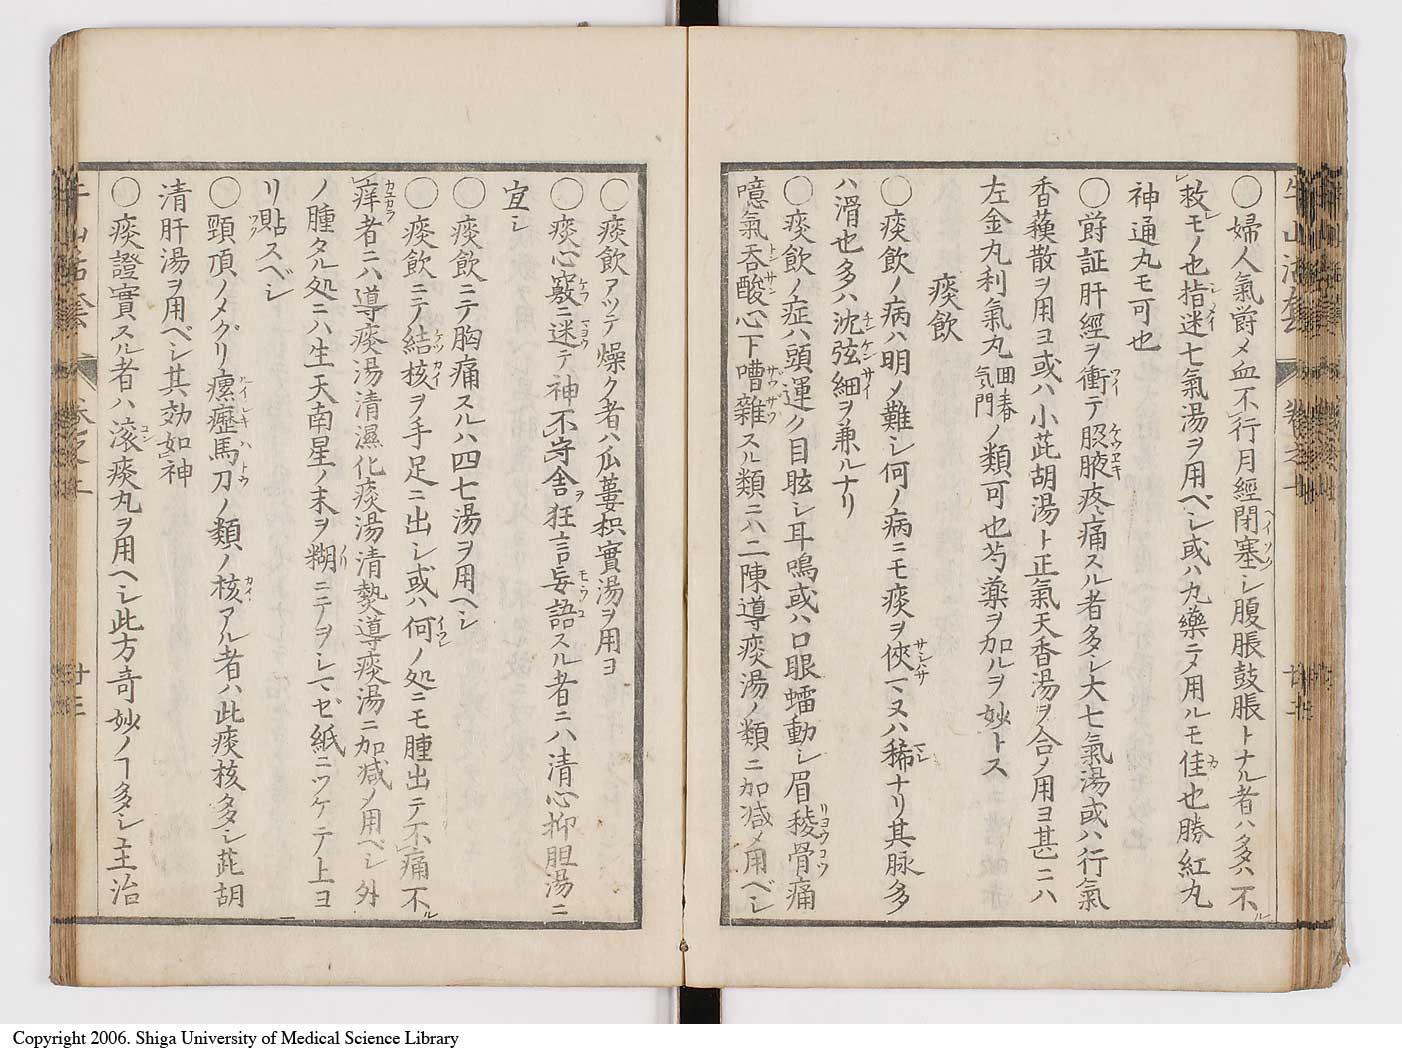 ○婦人氣欝メ血不行月經閉塞シ腹脹鼓脹トナル者ハ多ハ不ル
レ救モノ也指迷七氣湯ヲ用ベシ或ハ丸藥ニメ用ルモ佳也勝紅丸
神通丸モ可也
○欝証肝經ヲ衝テ脇腋疼痛スル者多シ大七氣湯或ハ行氣
香蘓散ヲ用ヨ或ハ小茈胡湯ト正氣天香湯ヲ合メ用ヨ甚ニハ
左金丸利氣丸回春氣門ノ類可也芍藥ヲ加ルヲ妙トス
痰飲
○痰飲ノ病ハ明メ難シ何ノ病ニモ痰ヲ俠マヌハ稀ナリ其脉多
ハ滑也多ハ沈弦細ヲ兼ルナリ
○痰飲ノ症ハ頭運ク目眩シ耳鳴或ハ口眼蠕動シ眉稜骨痛
噫氣吞酸心下嘈雜スル類ニハ二陳導痰湯ノ類ニ加减メ用ベシ
○痰飲アツテ燥ク者ハ瓜蔞枳實湯ヲ用ヨ
○痰心竅ニ迷テ神不守舍狂言妄語スル者ニハ清心抑胆湯ニ
宜シ
○痰飲ニテ胸痛スルハ四七湯ヲ用ヘシ
○痰飲ニテ結核ヲ手足ニ出シ或ハ何ノ処ニモ腫出テ不痛不ル
痒者ニハ導痰湯清濕化痰湯清熱導痰湯ニ加减メ用ベシ外
ノ腫タル処ニハ生天南星ノ末ヲ糊ニテヲシマゼ紙ニツケテ上ヨ
リ貼スベシ
○頸頂ノメグリ瘰癧馬刀ノ類ノ核アル者ハ此痰核多シ茈胡
清肝湯ヲ用ベシ其効如神
○痰證實スル者ハ滚痰丸ヲ用ヘシ此方奇妙ノヿ多シ王治
牛山活套 卷之上 廿三
Copyright 2006. Shiga University of Medical Science Library